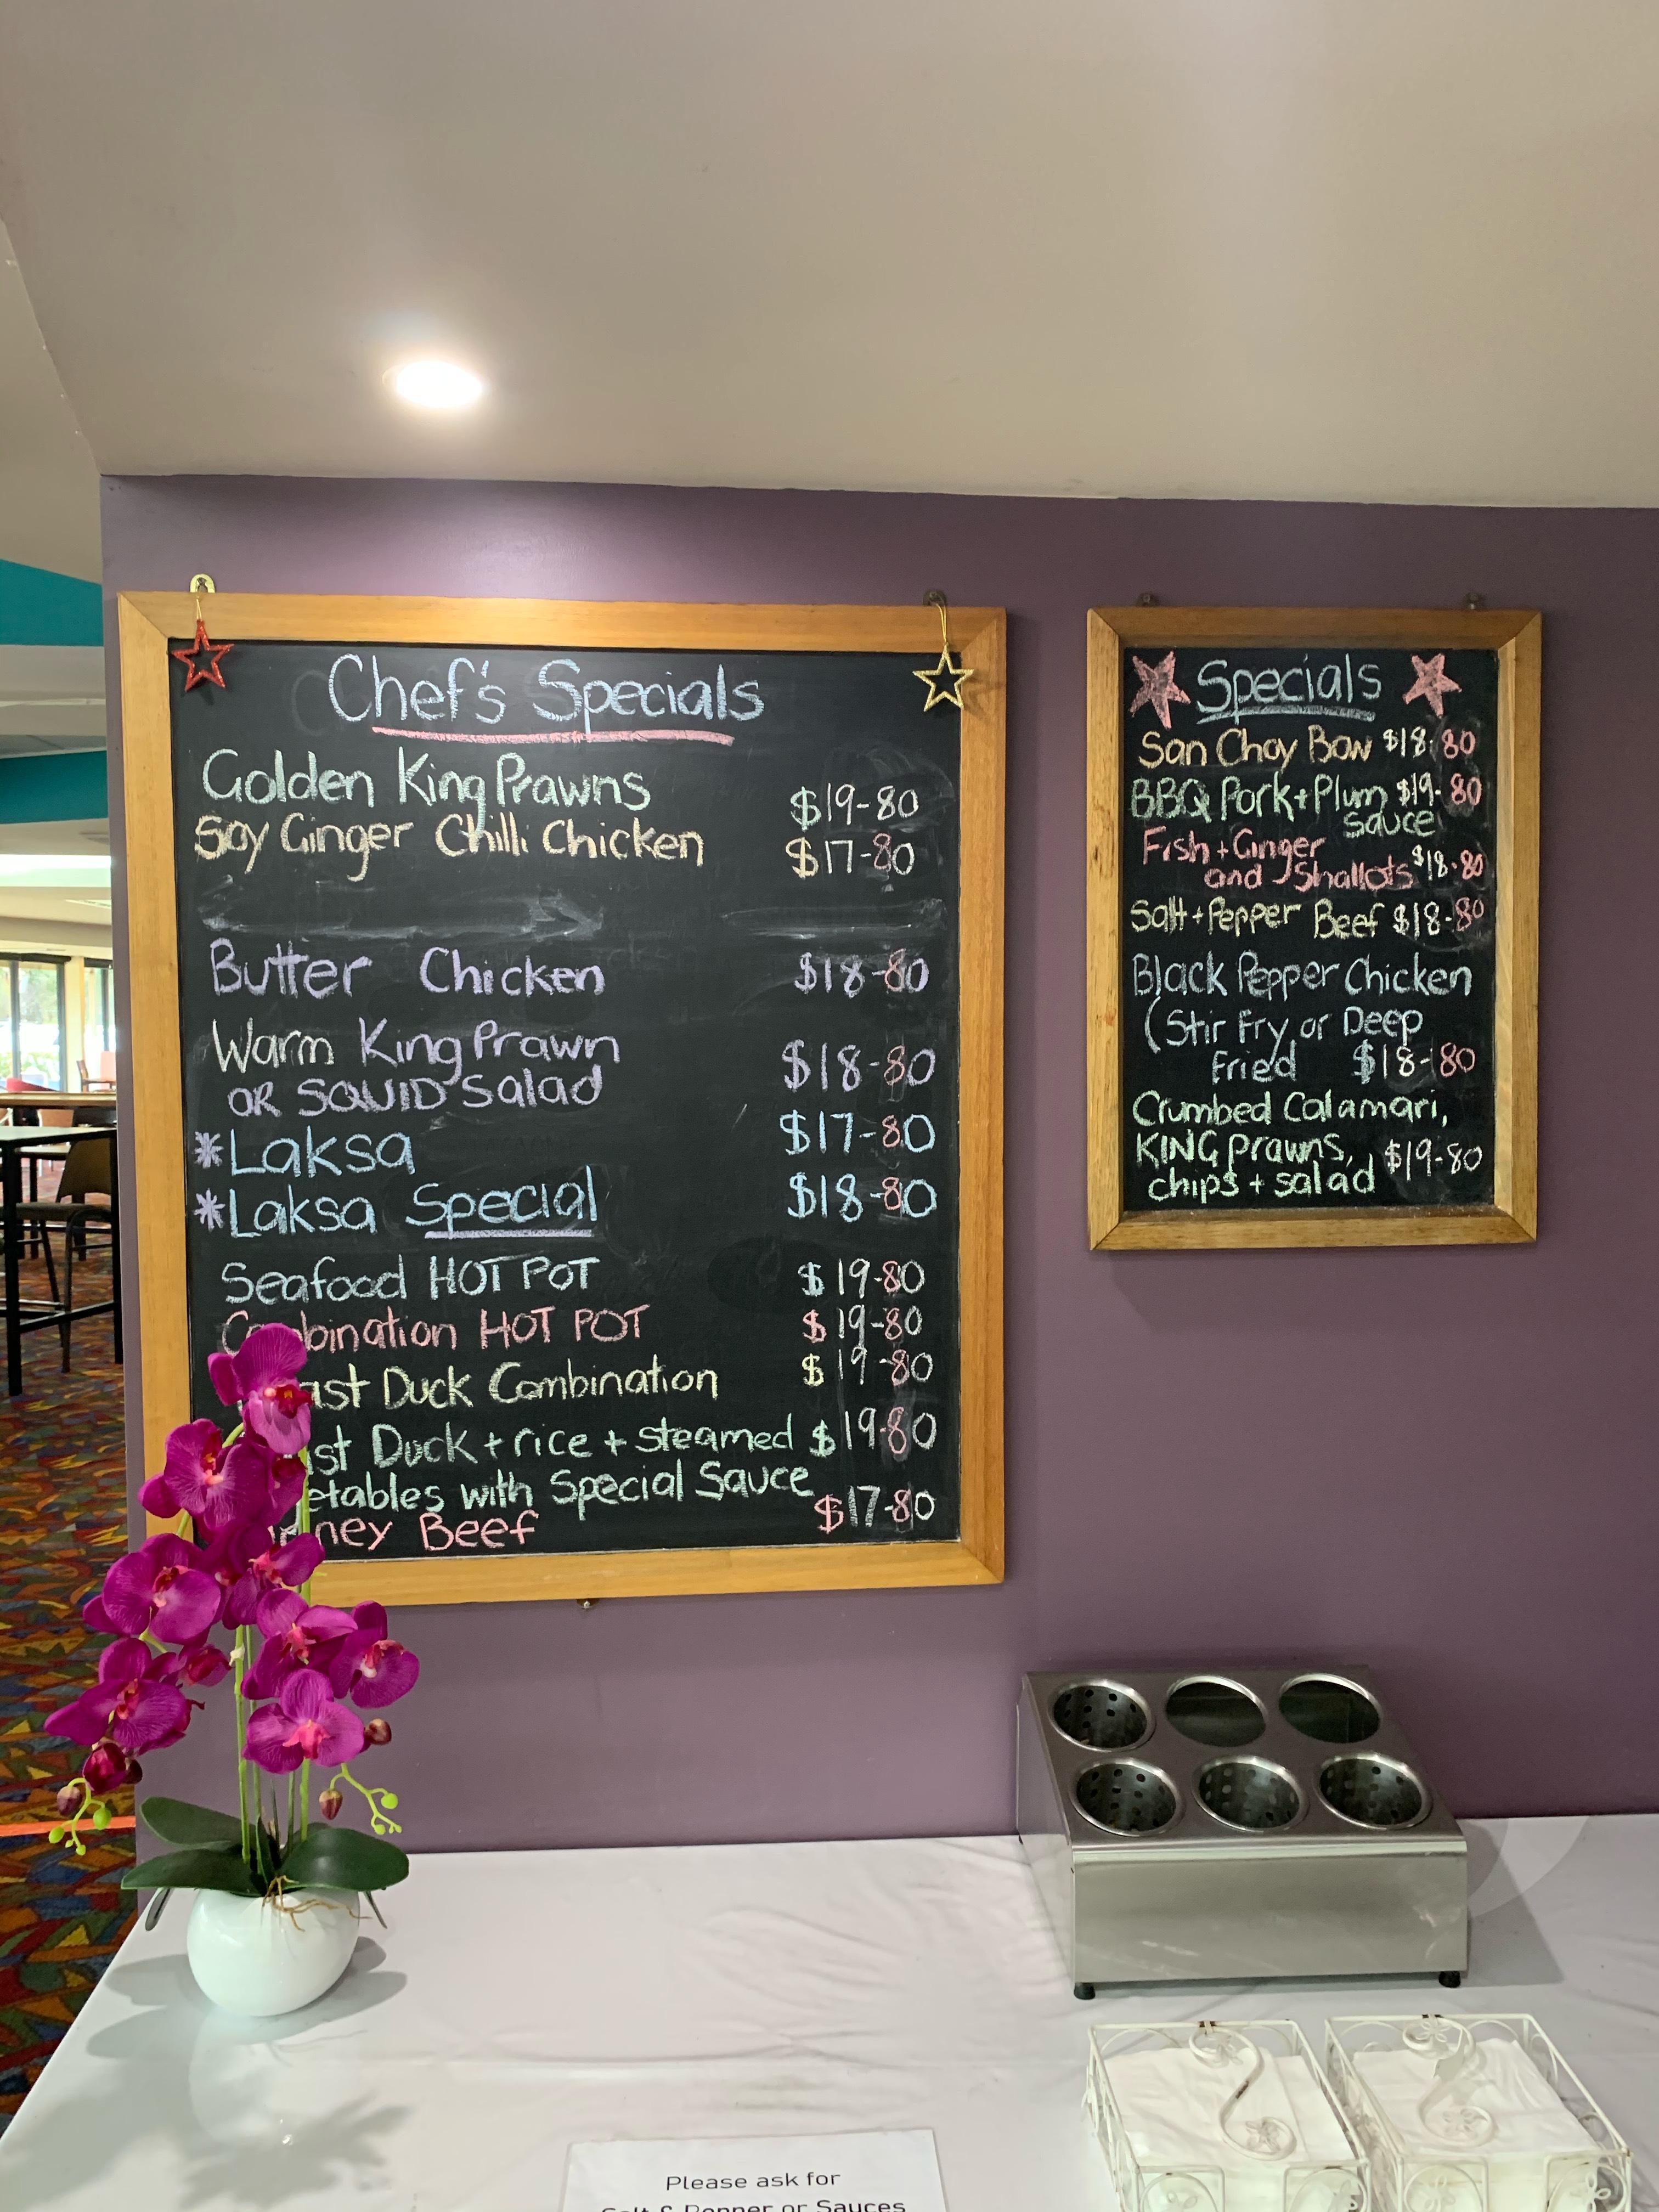 Chef's Specials
Golden King Prawns $19-80
Soy Ginger Chilli Chicken $17-80
Butter Chicken $18-80
Warm King Prawn
OR SQUID Salad $18-80
*Laksa $17-80
*Laksa Special $18-80
Seafood HOT POT $19-80
HOT POT $19-80
Duck Combination $19-80
Duck + rice + steamed $19-80
with Special Sauce
Beef $17-80
Specials
San Choy Bow $18.80
BBQ Pork + Plum $19-80
sauce
Fish + Ginger
and Shallots $18-80
Salt + Pepper Beef $18-80
Black Pepper Chicken
(Stir Fry or Deep
Fried $18-80
Crumbed Calamari,
KING prawns, $19-80
chips + salad
Please ask for
Salt & Pepper or Sauces